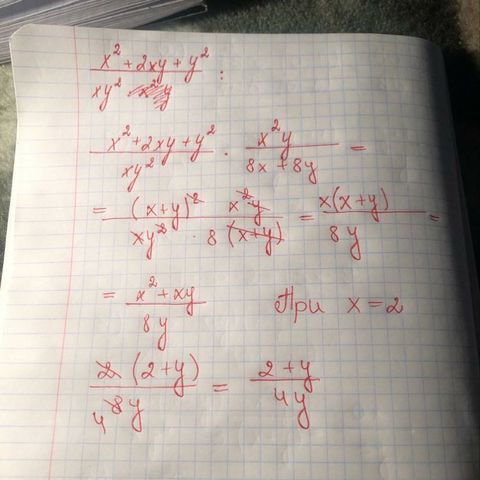 (x² + 2xy + y²) / (xy²) :
(x² + 2xy + y²) / (xy²) · (x²y) / (8x + 8y) =
= ((x+y)² x²·y) / (xy² · 8 (x+y)) = (x(x+y)) / (8y) =
= (x² + xy) / (8y) При x = 2
(2 (2+y)) / (4 8y) = (2+y) / (4y)